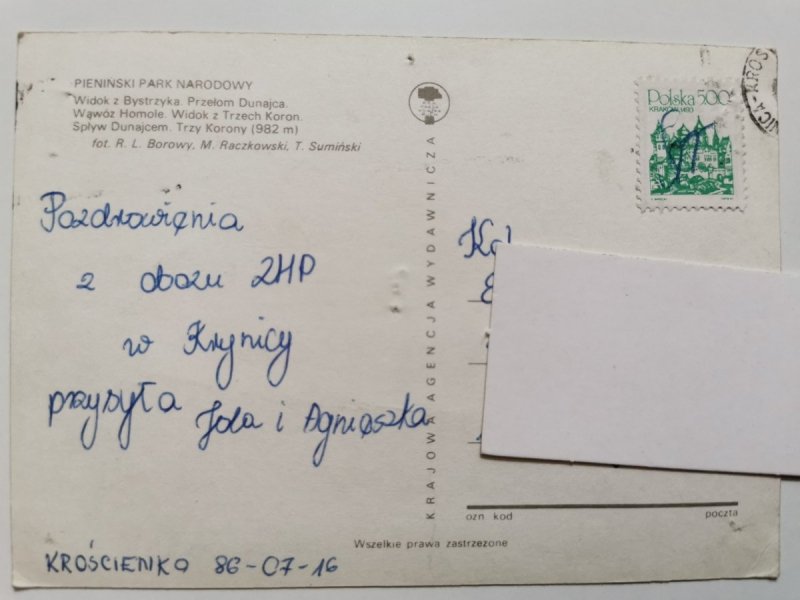 PIENIŃSKI PARK NARODOWY
Widok z Bystrzyka. Przełom Dunajca.
Wąwóz Homole. Widok z Trzech Koron.
Spływ Dunajcem. Trzy Korony (982 m)
fot. R. L. Borowy, M. Raczkowski, T. Sumiński
Pozdrowienia
z obozu ZHP
w Krynicy
przysyła Jola i Agnieszka
KROŚCIENKO 86-07-16
KRAJOWA AGENCJA WYDAWNICZA
Polska 5.00
KRAKÓW 1493
ozn kod poczta
Wszelkie prawa zastrzeżone